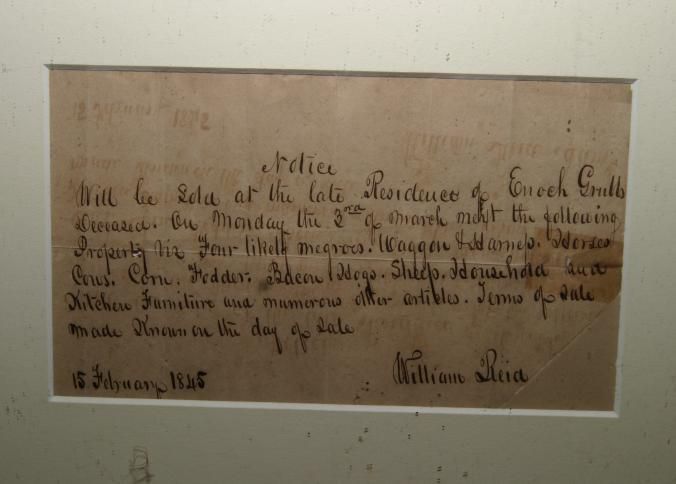 Notice
Will be Sold at the late Residence of Enoch Grubb
Deceased. On Monday the 3rd of March next the following
Property viz Four likely negroes. Waggon & Harness. Horses
Cows. Corn. Fodder. Bacon Hogs. Sheep. Household and
Kitchen Furniture and numerous other articles. Terms of Sale
made Known on the day of Sale
15 February 1845 William Reid
15 February 1845